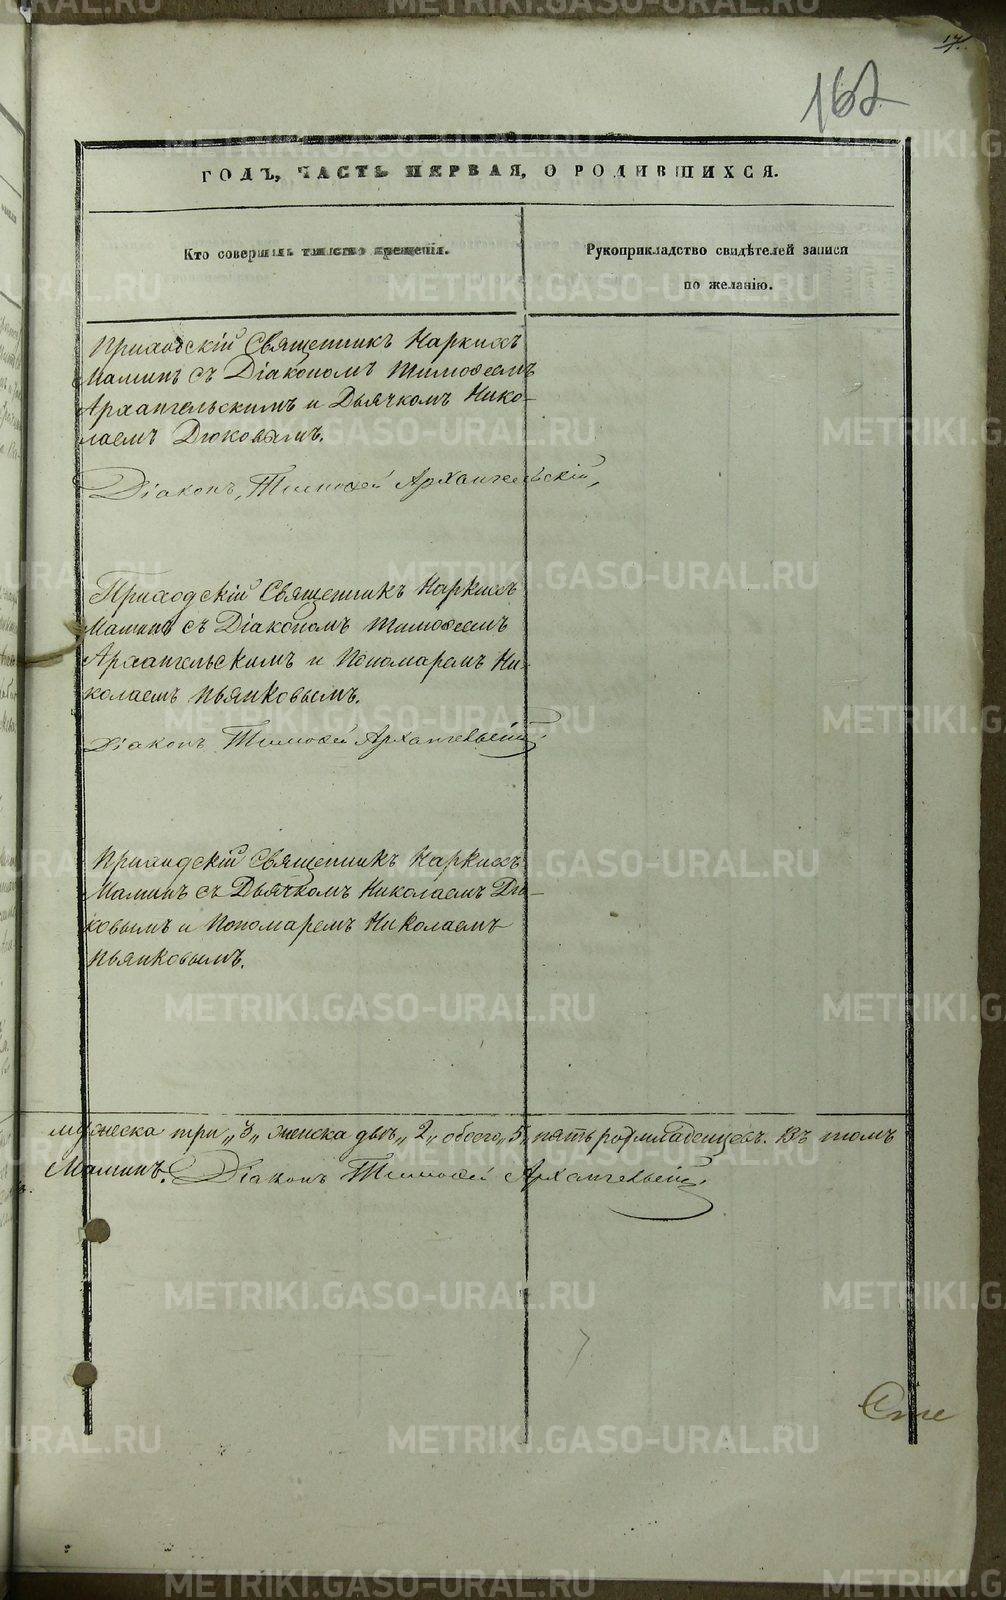 17.
162
ГОДЪ, ЧАСТЬ ПЕРВАЯ, О РОДИВШИХСЯ.
Кто совершалъ таинство крещенія.
Рукоприкладство свидѣтелей записи
по желанію.
Приходскій Священникъ Наркисъ
Маминъ съ Діакономъ Тимофеемъ
Архангельскимъ и Дьячкомъ Нико-
лаемъ Дюковымъ.
Діаконъ, Тимофей Архангельскій,
Приходскій Священникъ Наркисъ
Маминъ съ Діакономъ Тимофеемъ
Архангельскимъ и Пономаремъ Ни-
колаемъ Пьянковымъ.
Діаконъ Тимофей Архангельскій
Приходскій Священникъ Наркисъ
Маминъ съ Дьячкомъ Николаемъ Дю-
ковымъ и Пономаремъ Николаемъ
Пьянковымъ.
мужеска три „3„ женска двѣ „2„ обоего „5„ пять родилось младенцевъ. Въ томъ
Маминъ. Діаконъ Тимофей Архангельскій
METRIKI.GASO-URAL.RU